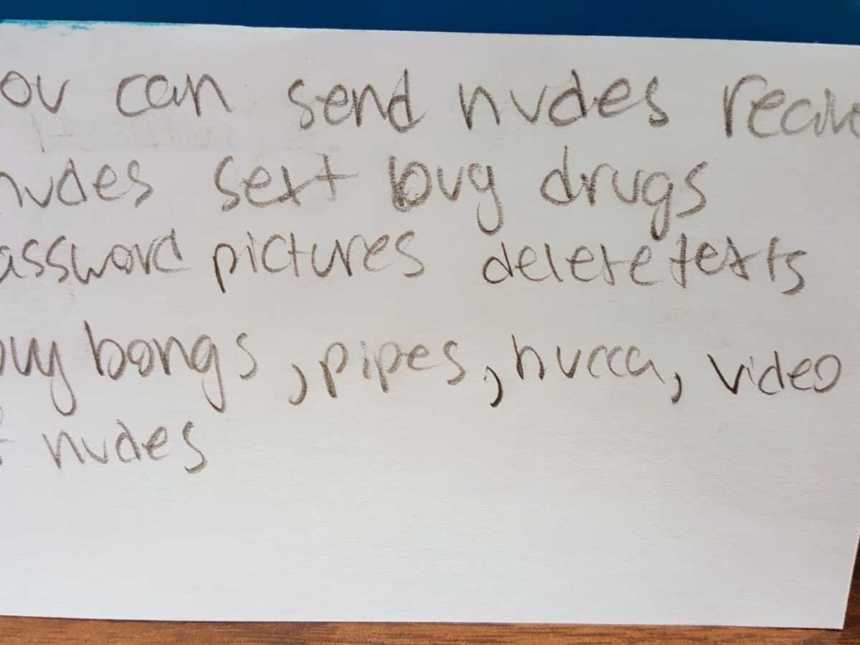 ou can send nudes recive
nudes sext buy drugs
assword pictures delete texts
buy bongs, pipes, hucca, video
nudes